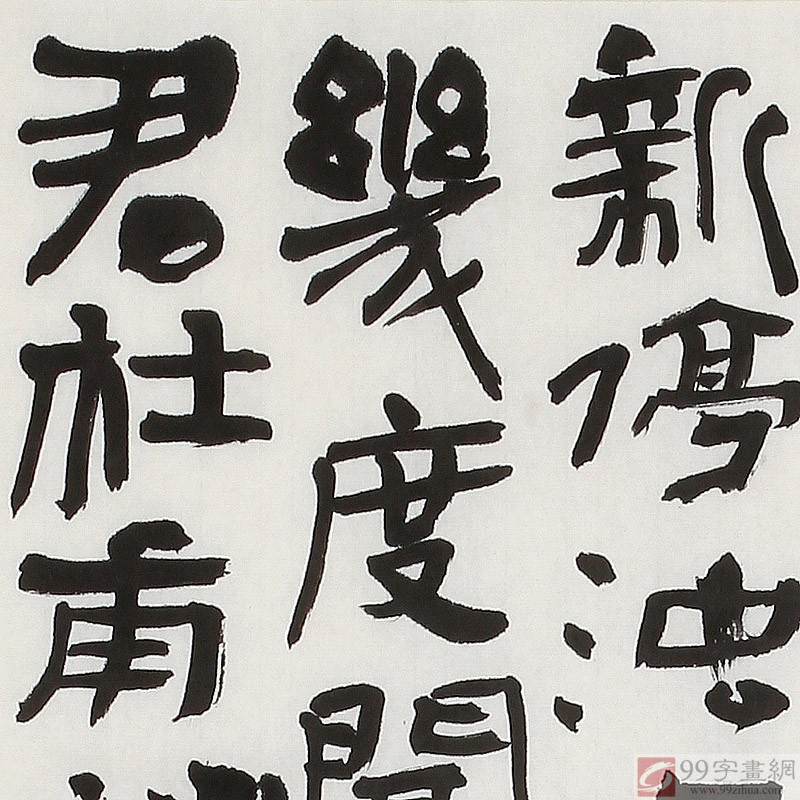 新停浊
幾度聞
君杜甫
99字畫網
www.99zihua.com